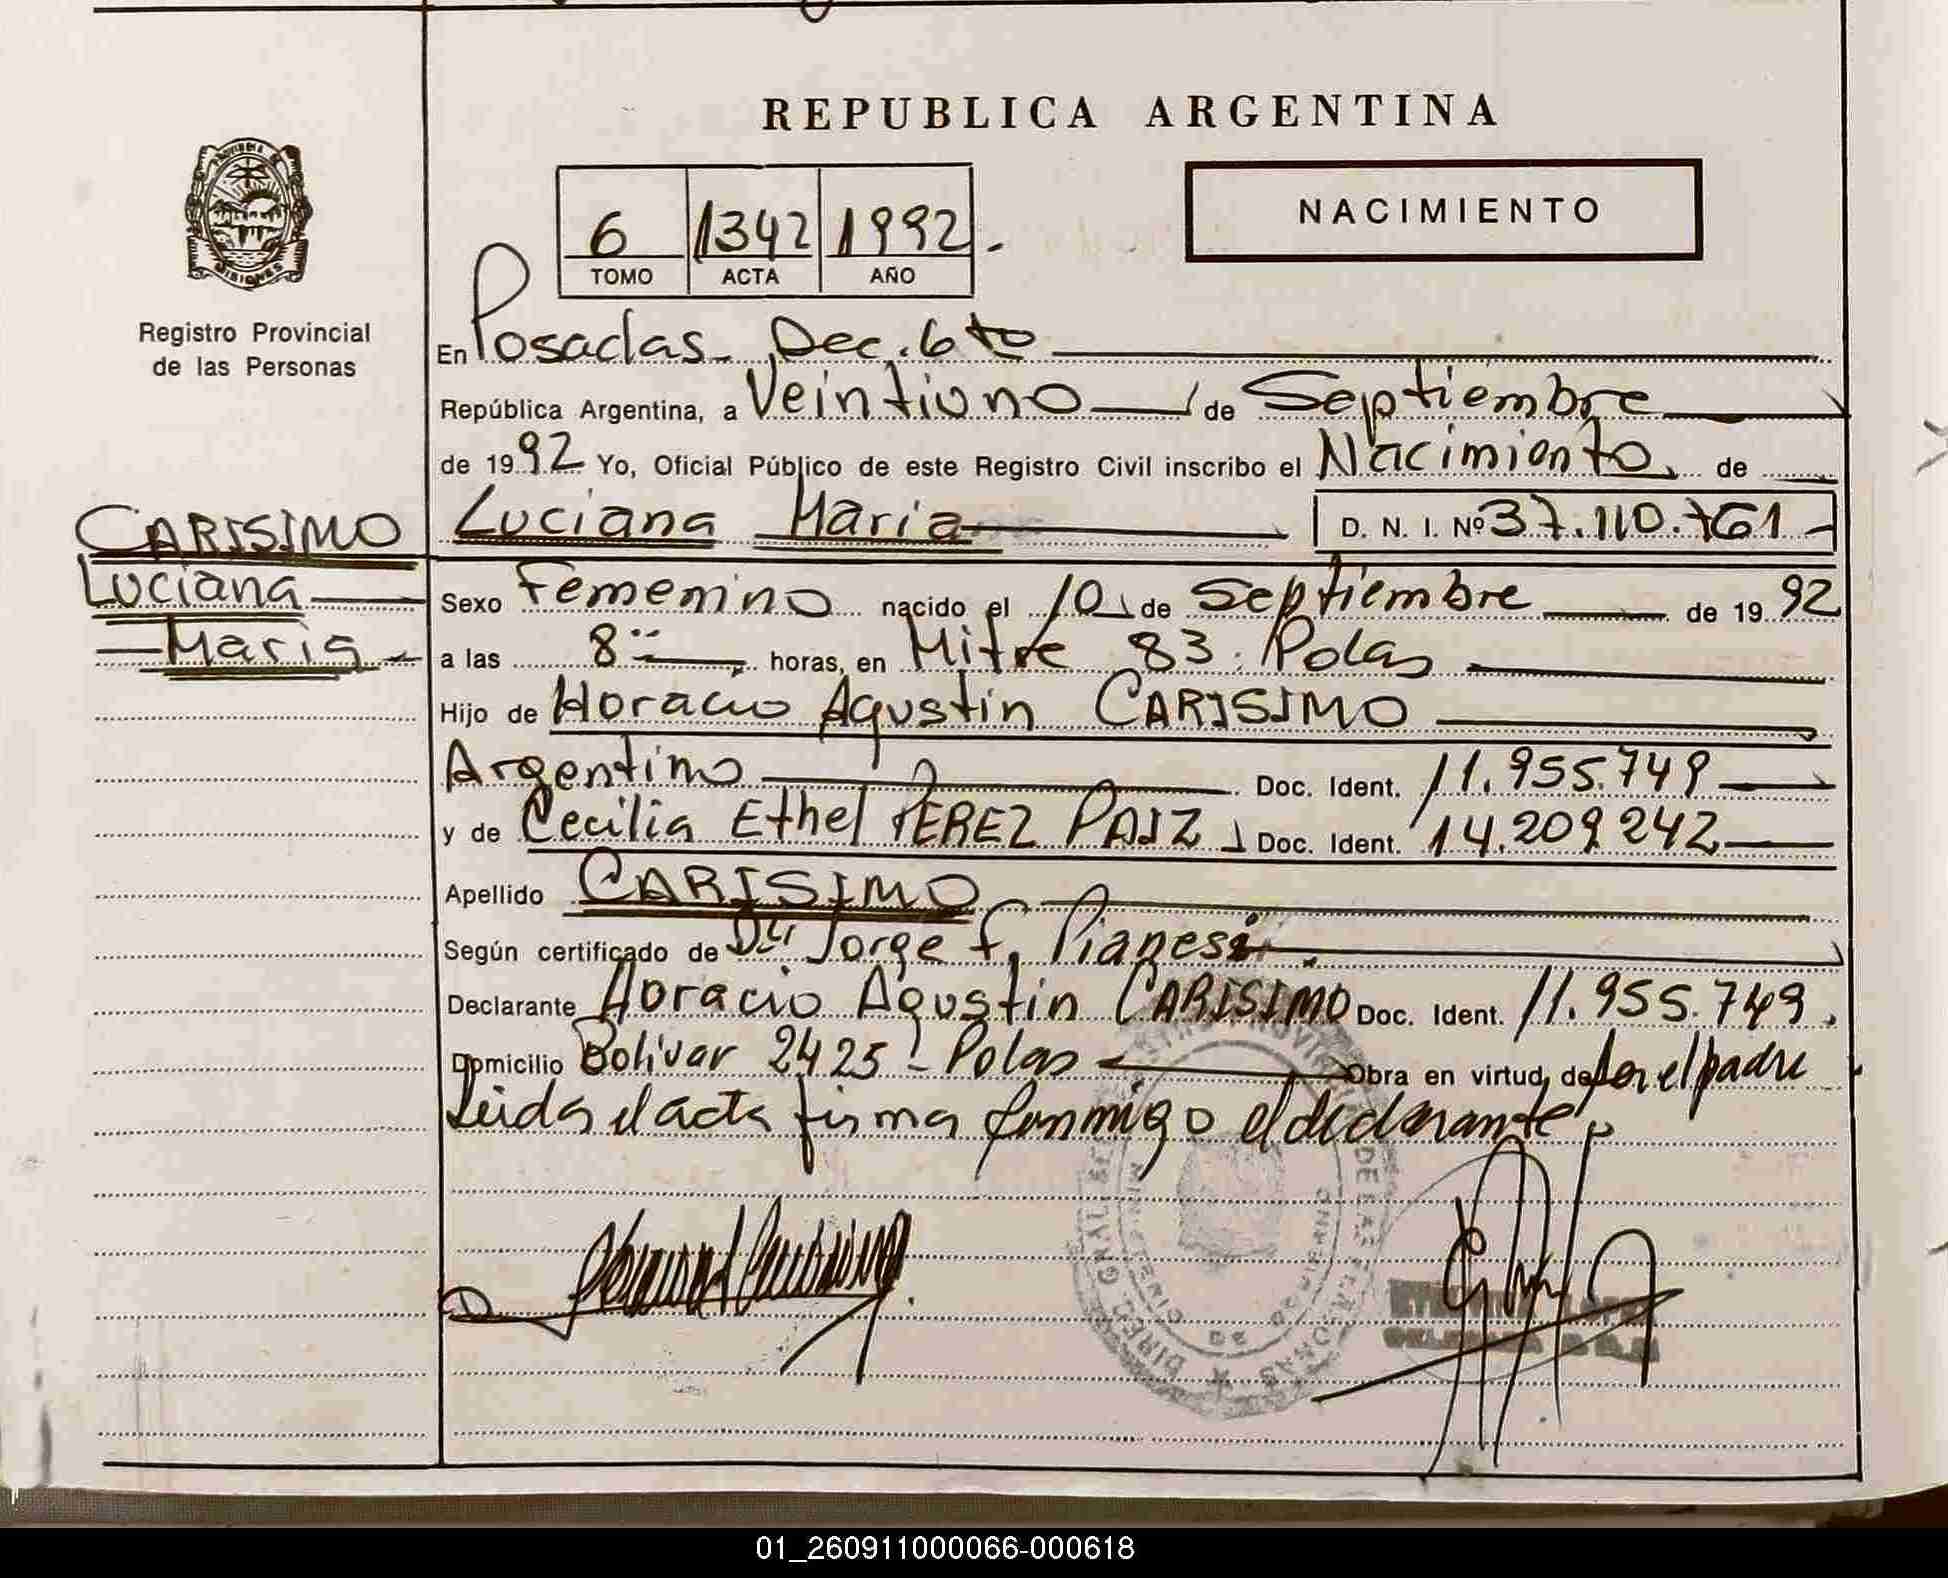 REPUBLICA ARGENTINA
6 1342 1992.
TOMO ACTA AÑO
NACIMIENTO
MISIONES
Registro Provincial
de las Personas
En Posadas - Dec. 6to
República Argentina, a Veintiuno de Septiembre
de 1992 Yo, Oficial Público de este Registro Civil inscribo el Nacimiento de
CARISIMO
Luciana
Maria
Luciana Maria D. N. I. Nº 37.110.761
Sexo Femenino nacido el 10 de Septiembre de 1992
a las 8 horas, en Mitre 83. Pdas
Hijo de Horacio Agustin CARISIMO
Argentino Doc. Ident. 11.955.749
y de Cecilia Ethel PEREZ PAIZ Doc. Ident. 14.209.242
Apellido CARISIMO
Según certificado de Jorge F. Pianesi
Declarante Horacio Agustin CARISIMO Doc. Ident. 11.955.749.
Domicilio Bolivar 2425 - Pdas Obra en virtud de Ser el padre
Leida el acta firma conmigo el declarante
01_260911000066-000618